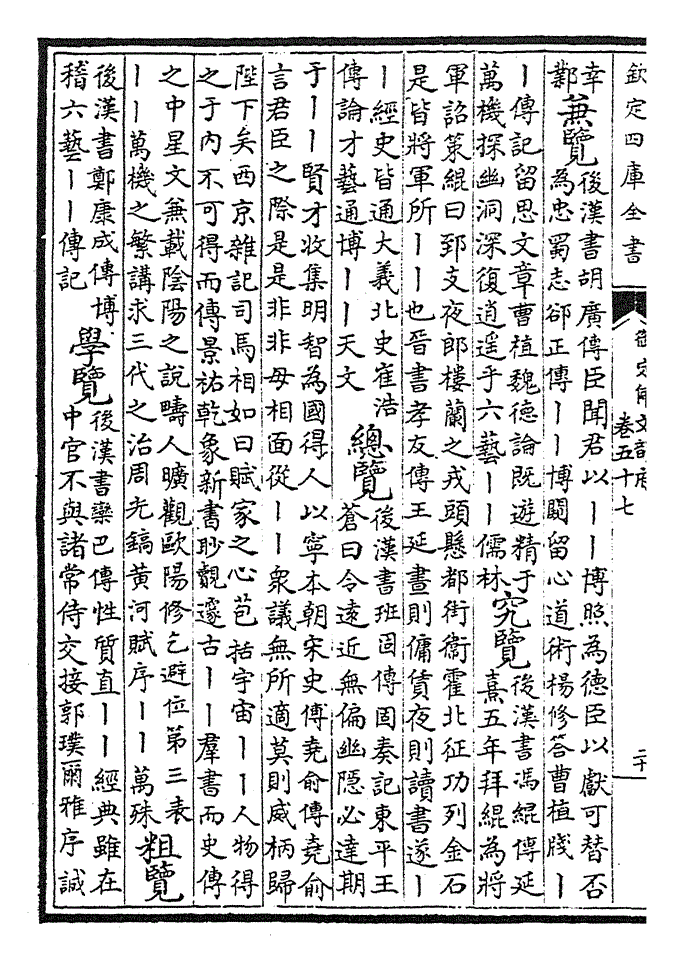 欽定四庫全書
御定佩文韻府
卷五十七
二十
幸
鄴
兼覽
後漢書胡廣傳臣聞君以丨丨博照為德臣以獻可替否
為忠蜀志郤正傳丨丨博闚留心道術楊修答曹植牋丨
丨傳記留思文章曹植魏德論既遊精于
萬機探幽洞深復逍遥乎六藝丨丨儒林
究覽
後漢書馮緄傳延
熹五年拜緄為將
軍詔策緄曰郅支夜郎樓蘭之戎頭懸都街衛霍北征功列金石
是皆將軍所丨丨也晉書孝友傳王延晝則傭賃夜則讀書遂丨
丨經史皆通大義北史崔浩
傳論才藝通博丨丨天文
總覽
後漢書班固傳固奏記東平王
蒼曰令遠近無偏幽隱必達期
于丨丨賢才收集明智為國得人以寧本朝宋史傳堯俞傳堯俞
言君臣之際是是非非毋相面從丨丨衆議無所適莫則威柄歸
陛下矣西京雜記司馬相如曰賦家之心苞括宇宙丨丨人物得
之于内不可得而傳景祐乾象新書眇覿邃古丨丨羣書而史傳
之中星文兼載陰陽之說疇人曠觀歐陽修乞避位第三表
丨丨萬機之繁講求三代之治周光鎬黄河賦序丨丨萬殊
粗覽
後漢書鄭康成傳博
稽六藝丨丨傳記
學覽
後漢書欒巴傳性質直丨丨經典雖在
中官不與諸常侍交接郭璞爾雅序誠